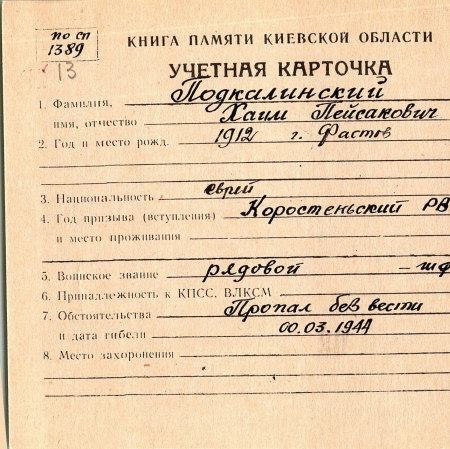 по сп
1389
13
КНИГА ПАМЯТИ КИЕВСКОЙ ОБЛАСТИ
УЧЕТНАЯ КАРТОЧКА
1. Фамилия, Подкалинский
имя, отчество Хаим Пейсакович
2. Год и место рожд. 1912 г. Фастов
3. Национальность еврей
4. Год призыва (вступления) Коростеньский РВ
и место проживания
5. Воинское звание рядовой – шф
6. Принадлежность к КПСС, ВЛКСМ
7. Обстоятельства Пропал без вести
и дата гибели 00.03.1944
8. Место захоронения